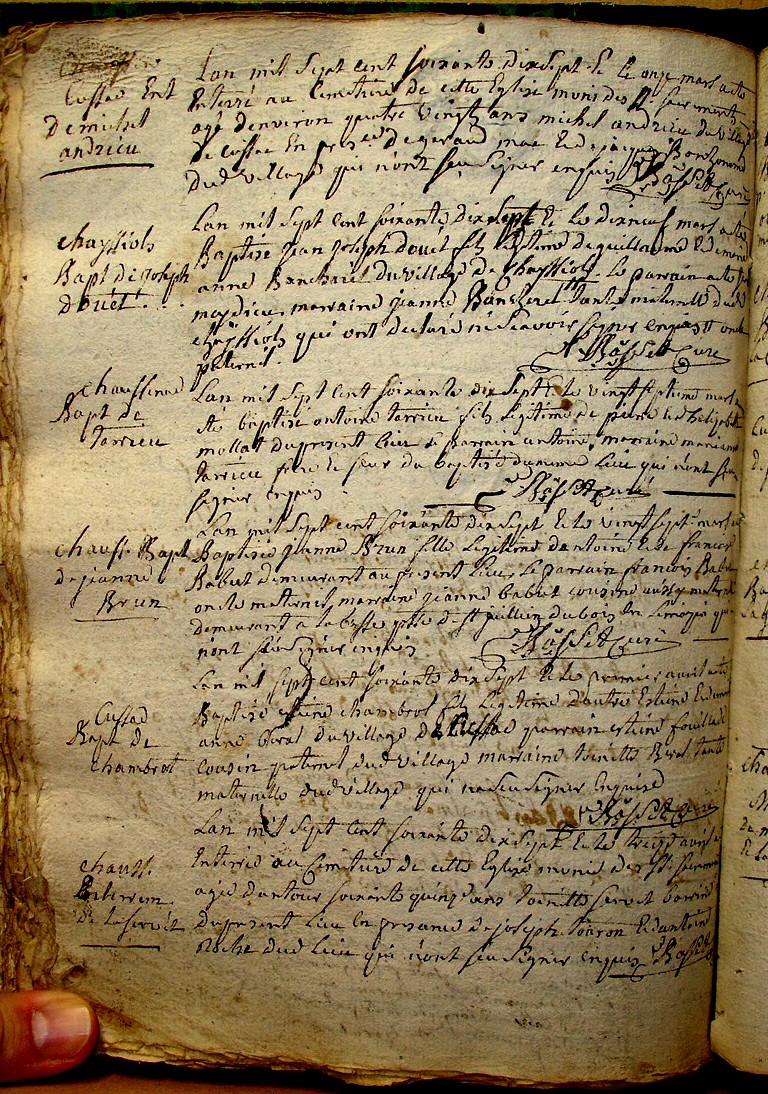 Cussac Ent
de michel
andrieu
Lan mil sept cent soixante dix sept et le onze mars a ete
Enterré au Cimetiere de cette Eglise munis des Sts sacrements
agé denviron quatre vingt ans michel andrieu du village
de Cussac En presce de geraud mac et de jacques
dud village qui n'ont sceu signer enquis Basset Curé
chayssiols
Bapt de joseph
douët
Lan mil sept cent soixante dix sept et le dix neuf mars a ete
Baptisé jean joseph douët fils legitime de guillaume et de marie
anne Rancharel du village de chayssiols. le parrain a ete
marraine jeanne tante maternelle dud
chayssiols qui ont declaré ne scavoir signer enquis oncle
paternel.
Basset Curé
Chaussenac
Bapt de
tarrieu
Lan mil sept cent soixante dix sept et le vingt septieme mars a
été baptisé antoine tarrieu fils legitime de pierre et helizabeth
mollat du present lieu le parrain antoine, marraine marianne
tarrieu frere et seur du baptisé du meme lieu qui n'ont sceu
signer enquis
Basset Curé
chauss. Bapt
de jeanne
Brun
Lan mil sept cent soixante dix sept et le vingt sept mars a ete
Baptisée jeanne Brun fille legitime dantoine et de francoise
Babut demeurant au present lieu, le parrain francois Babut
oncle maternel, marraine jeanne babut cousine aussy maternelle
demeurant a la besse psse de st jullien du bois en Limozin qui
nont sceu signer enquis
Basset Curé
Cussac
Bapt de
Chambrot
Lan mil sept cent soixante dix sept et le premier avril a ete
Baptisé chambrot fils legitime dautre Estiene et de marie
anne Beral du village de Cussac parrain estiene fouillade
Cousin paternel dud village marraine toinette Beral tante
maternelle dud village qui na sceu signer Enquise
Basset Curé
chauss.
Enterrem
de la servit
Lan mil sept cent soixante dix sept et le treize avril a ete
Enterrée au Cimetiere de cette Eglise munie des Sts sacremens
agée dautour soixante quinze ans toinette servit
du present lieu En presance de joseph et dantoine
Roche dud lieu qui n'ont sceu signer enquis Basset